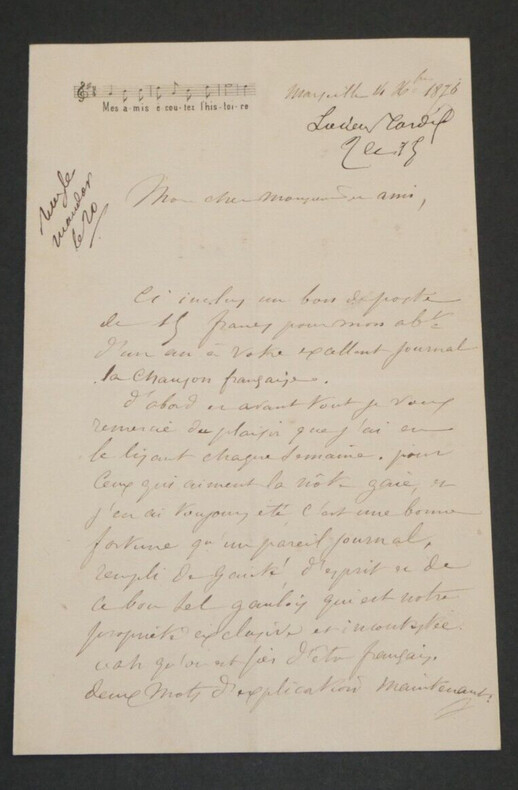 Mes a-mis é cou-tez l'his-toi-re
Marseille 14 Xbre 1876
Lucien
le 20
Mon cher Monsieur et ami,
Ci inclus un bon de poste
de 15 francs pour mon abt
d'un an à votre excellent journal
la Chanson française.
d'abord et avant tout je vous
remercie du plaisir que j'ai en
le lisant chaque semaine. pour
ceux qui aiment la nôte gaie, et
j'en ai toujours été, c'est une bonne
fortune qu'un pareil journal,
rempli de gaité, d'esprit et de
ce bon sel gaulois qui est notre
propriété exclusive et incontestée.
qu'on est fier d'être français.
deux mots d'explication maintenant,